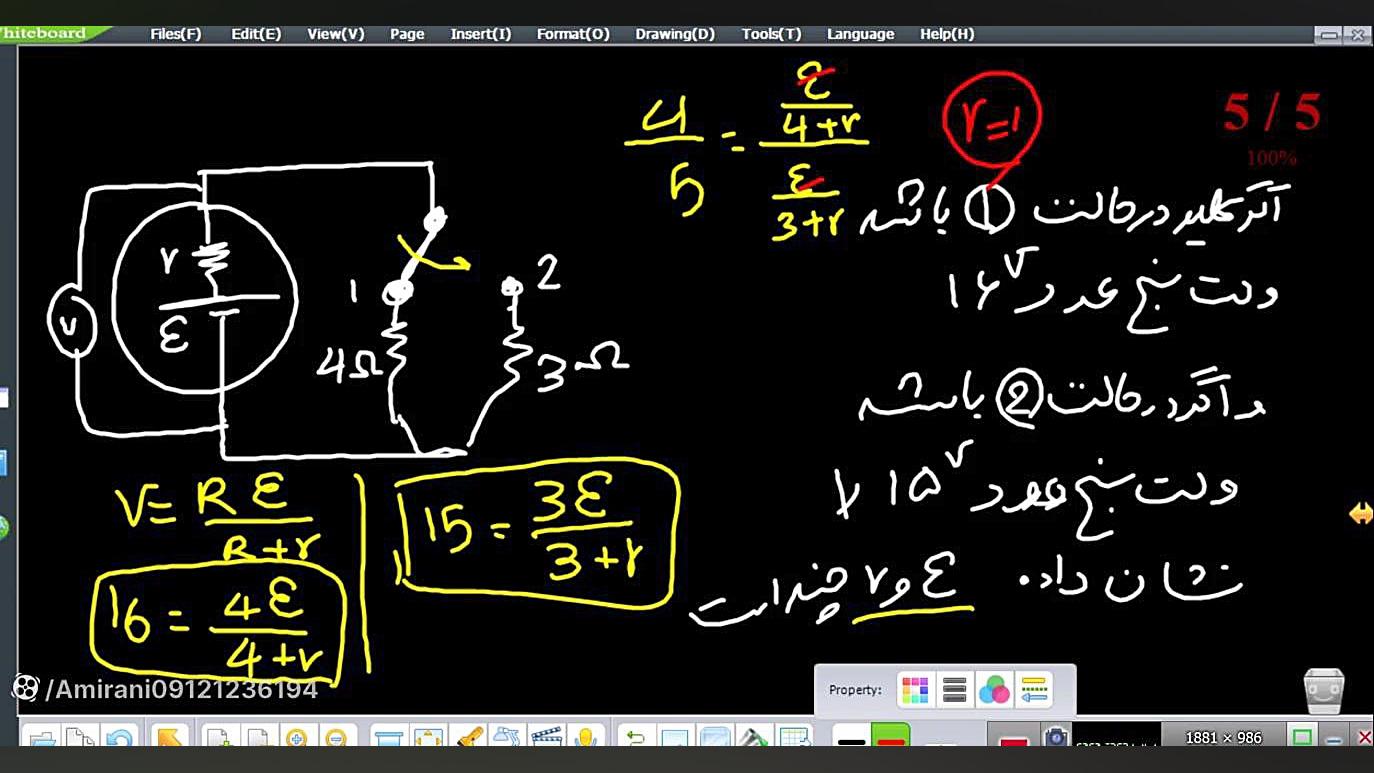 Whiteboard Files(F) Edit(E) View(V) Page Insert(I) Format(O) Drawing(D) Tools(T) Language Help(H)
5 / 5
100%
4/5 = (ε/(4+r))/(ε/(3+r))
r=1
اگر کلید در حالت ① باشد
ولت سنج عدد 16v
و اگر در حالت ② باشد
ولت سنج عدد 15v را
نشان داده ε و r چند است
r
ε
V
1
2
4Ω
3Ω
V = Rε/(R+r)
16 = 4ε/(4+r)
15 = 3ε/(3+r)
/Amirani09121236194
Property:
1881 × 986